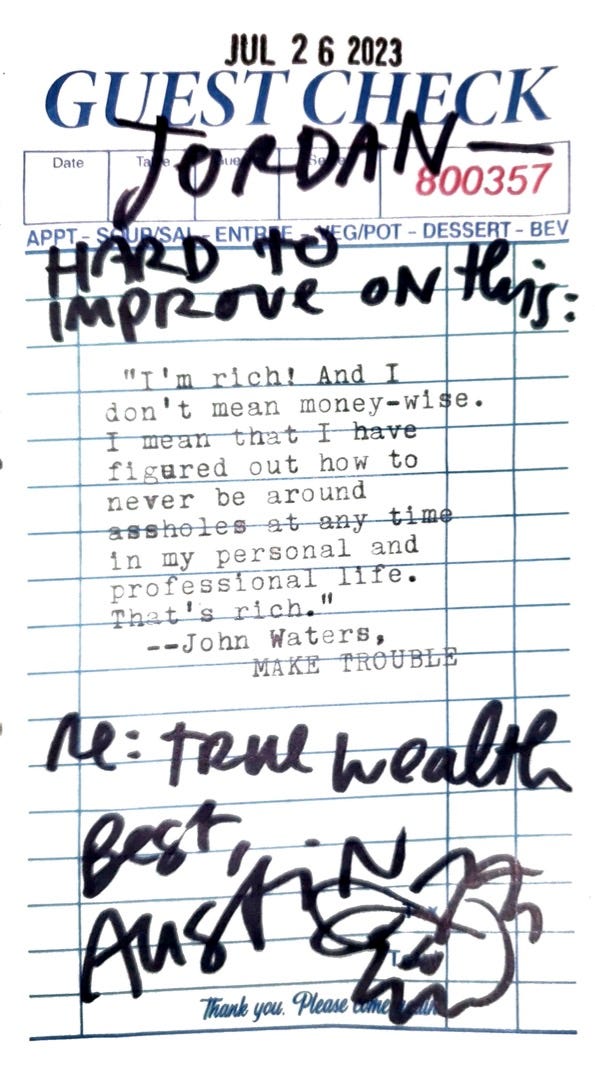 JUL 26 2023
GUEST CHECK
JORDAN—
Date
800357
APPT - SOUP/SAL - ENTREE - VEG/POT - DESSERT - BEV
HARD TO
IMPROVE ON this:
"I'm rich! And I
don't mean money-wise.
I mean that I have
figured out how to
never be around
assholes at any time
in my personal and
professional life.
That's rich."
--John Waters,
MAKE TROUBLE
re: true wealth
Best,
AUSTIN
Thank you. Please come again